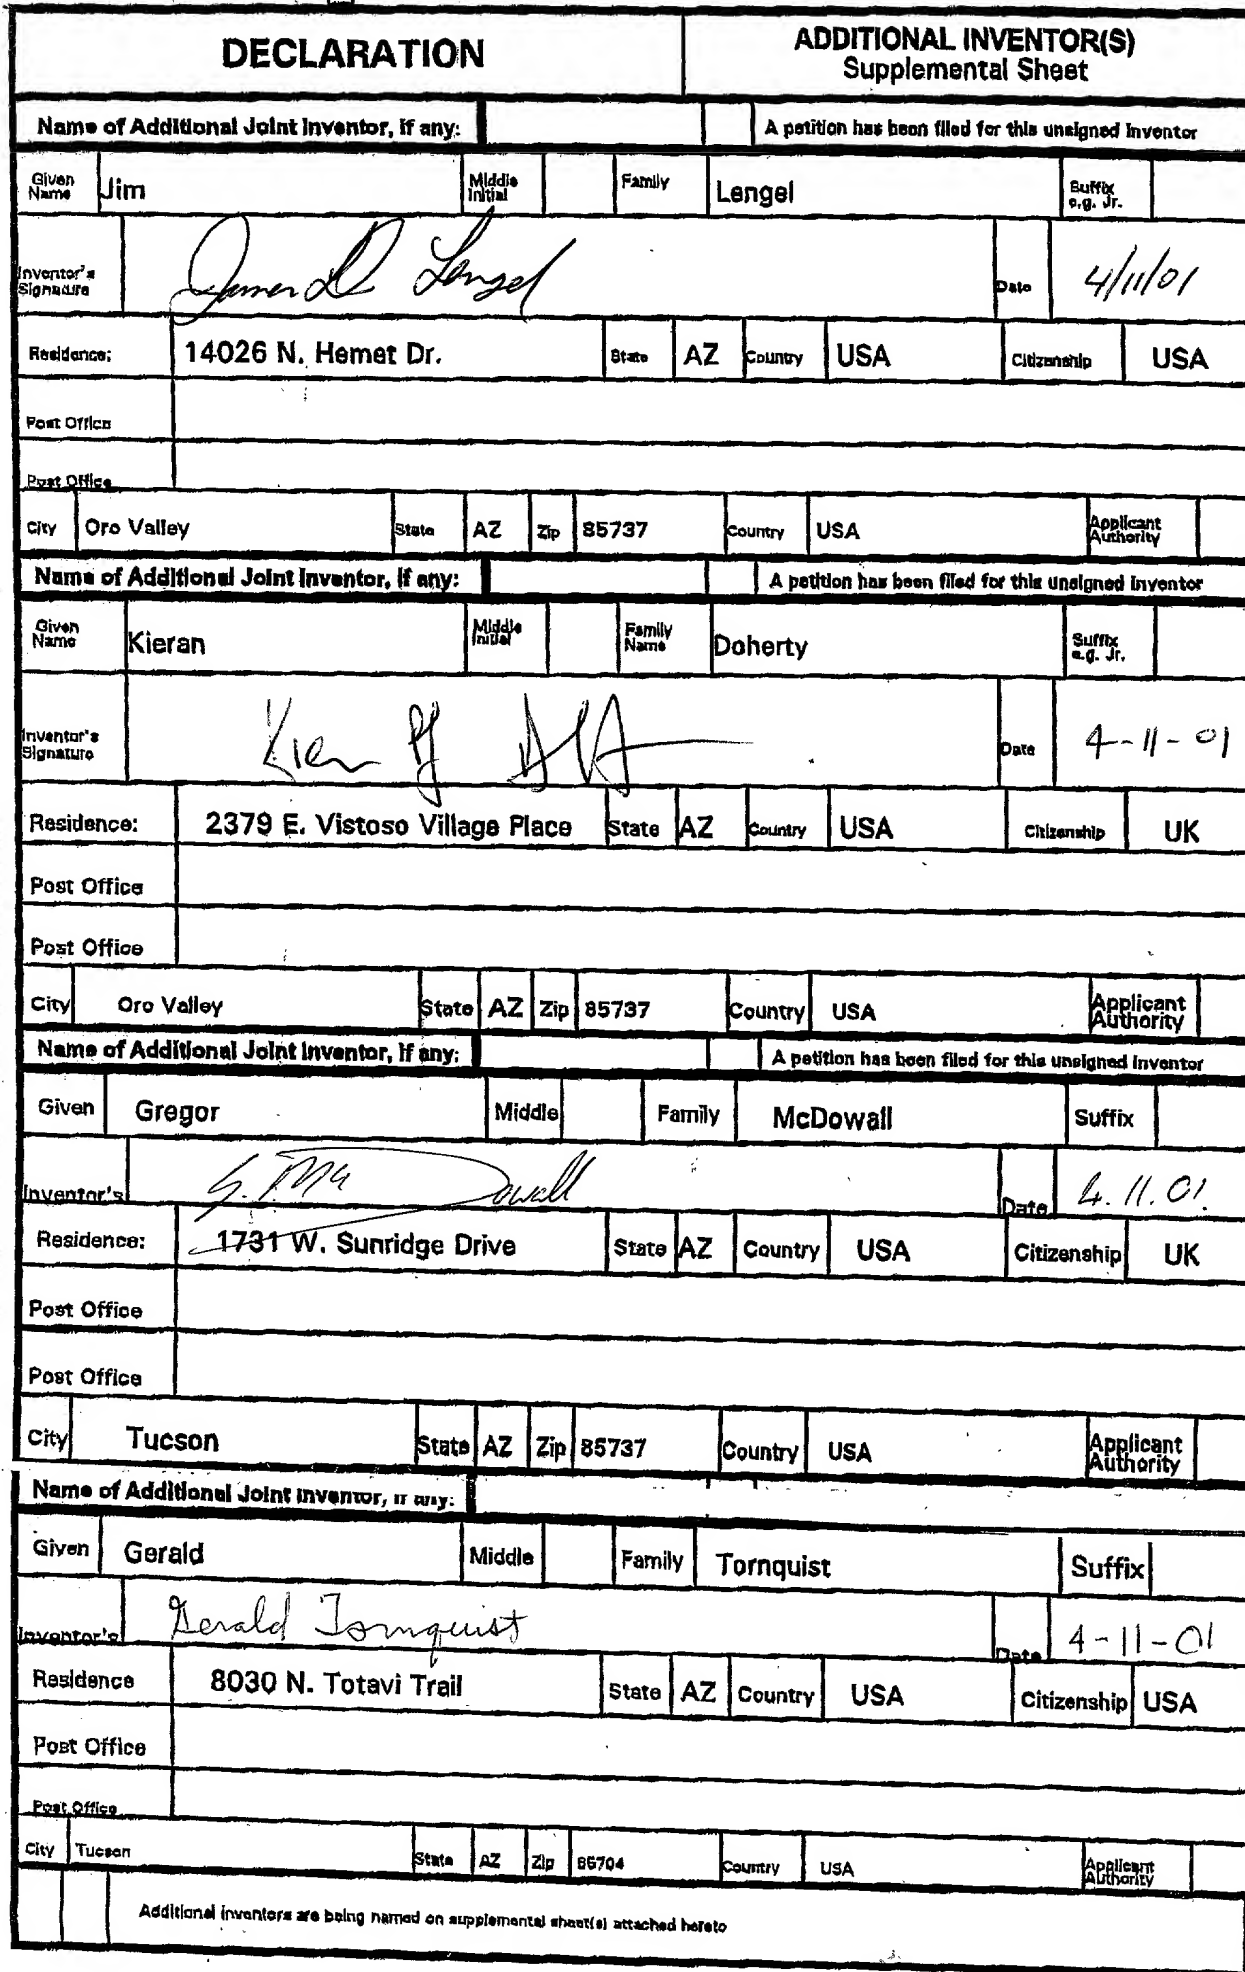 DECLARATION ADDITIONAL INVENTOR(S)
Supplemental Sheet
Name of Additional Joint Inventor, if any: A petition has been filed for this unsigned inventor
Given Name Jim Middle Initial Family Lengel Suffix e.g. Jr.
Inventor's Signature James D Lengel Date 4/11/01
Residence: 14026 N. Hemet Dr. State AZ Country USA Citizenship USA
Post Office
Post Office
City Oro Valley State AZ Zip 85737 Country USA Applicant Authority
Name of Additional Joint Inventor, if any: A petition has been filed for this unsigned inventor
Given Name Kieran Middle Initial Family Name Doherty Suffix e.g. Jr.
Inventor's Signature Date 4-11-01
Residence: 2379 E. Vistoso Village Place State AZ Country USA Citizenship UK
Post Office
Post Office
City Oro Valley State AZ Zip 85737 Country USA Applicant Authority
Name of Additional Joint Inventor, if any: A petition has been filed for this unsigned inventor
Given Gregor Middle Family McDowall Suffix
Inventor's G. McDowall Date 4.11.01
Residence: 1731 W. Sunridge Drive State AZ Country USA Citizenship UK
Post Office
Post Office
City Tucson State AZ Zip 85737 Country USA Applicant Authority
Name of Additional Joint Inventor, if any:
Given Gerald Middle Family Tornquist Suffix
Inventor's Gerald Tornquist Date 4-11-01
Residence 8030 N. Totavi Trail State AZ Country USA Citizenship USA
Post Office
Post Office
City Tucson State AZ Zip 85704 Country USA Applicant Authority
Additional inventors are being named on supplemental sheet(s) attached hereto